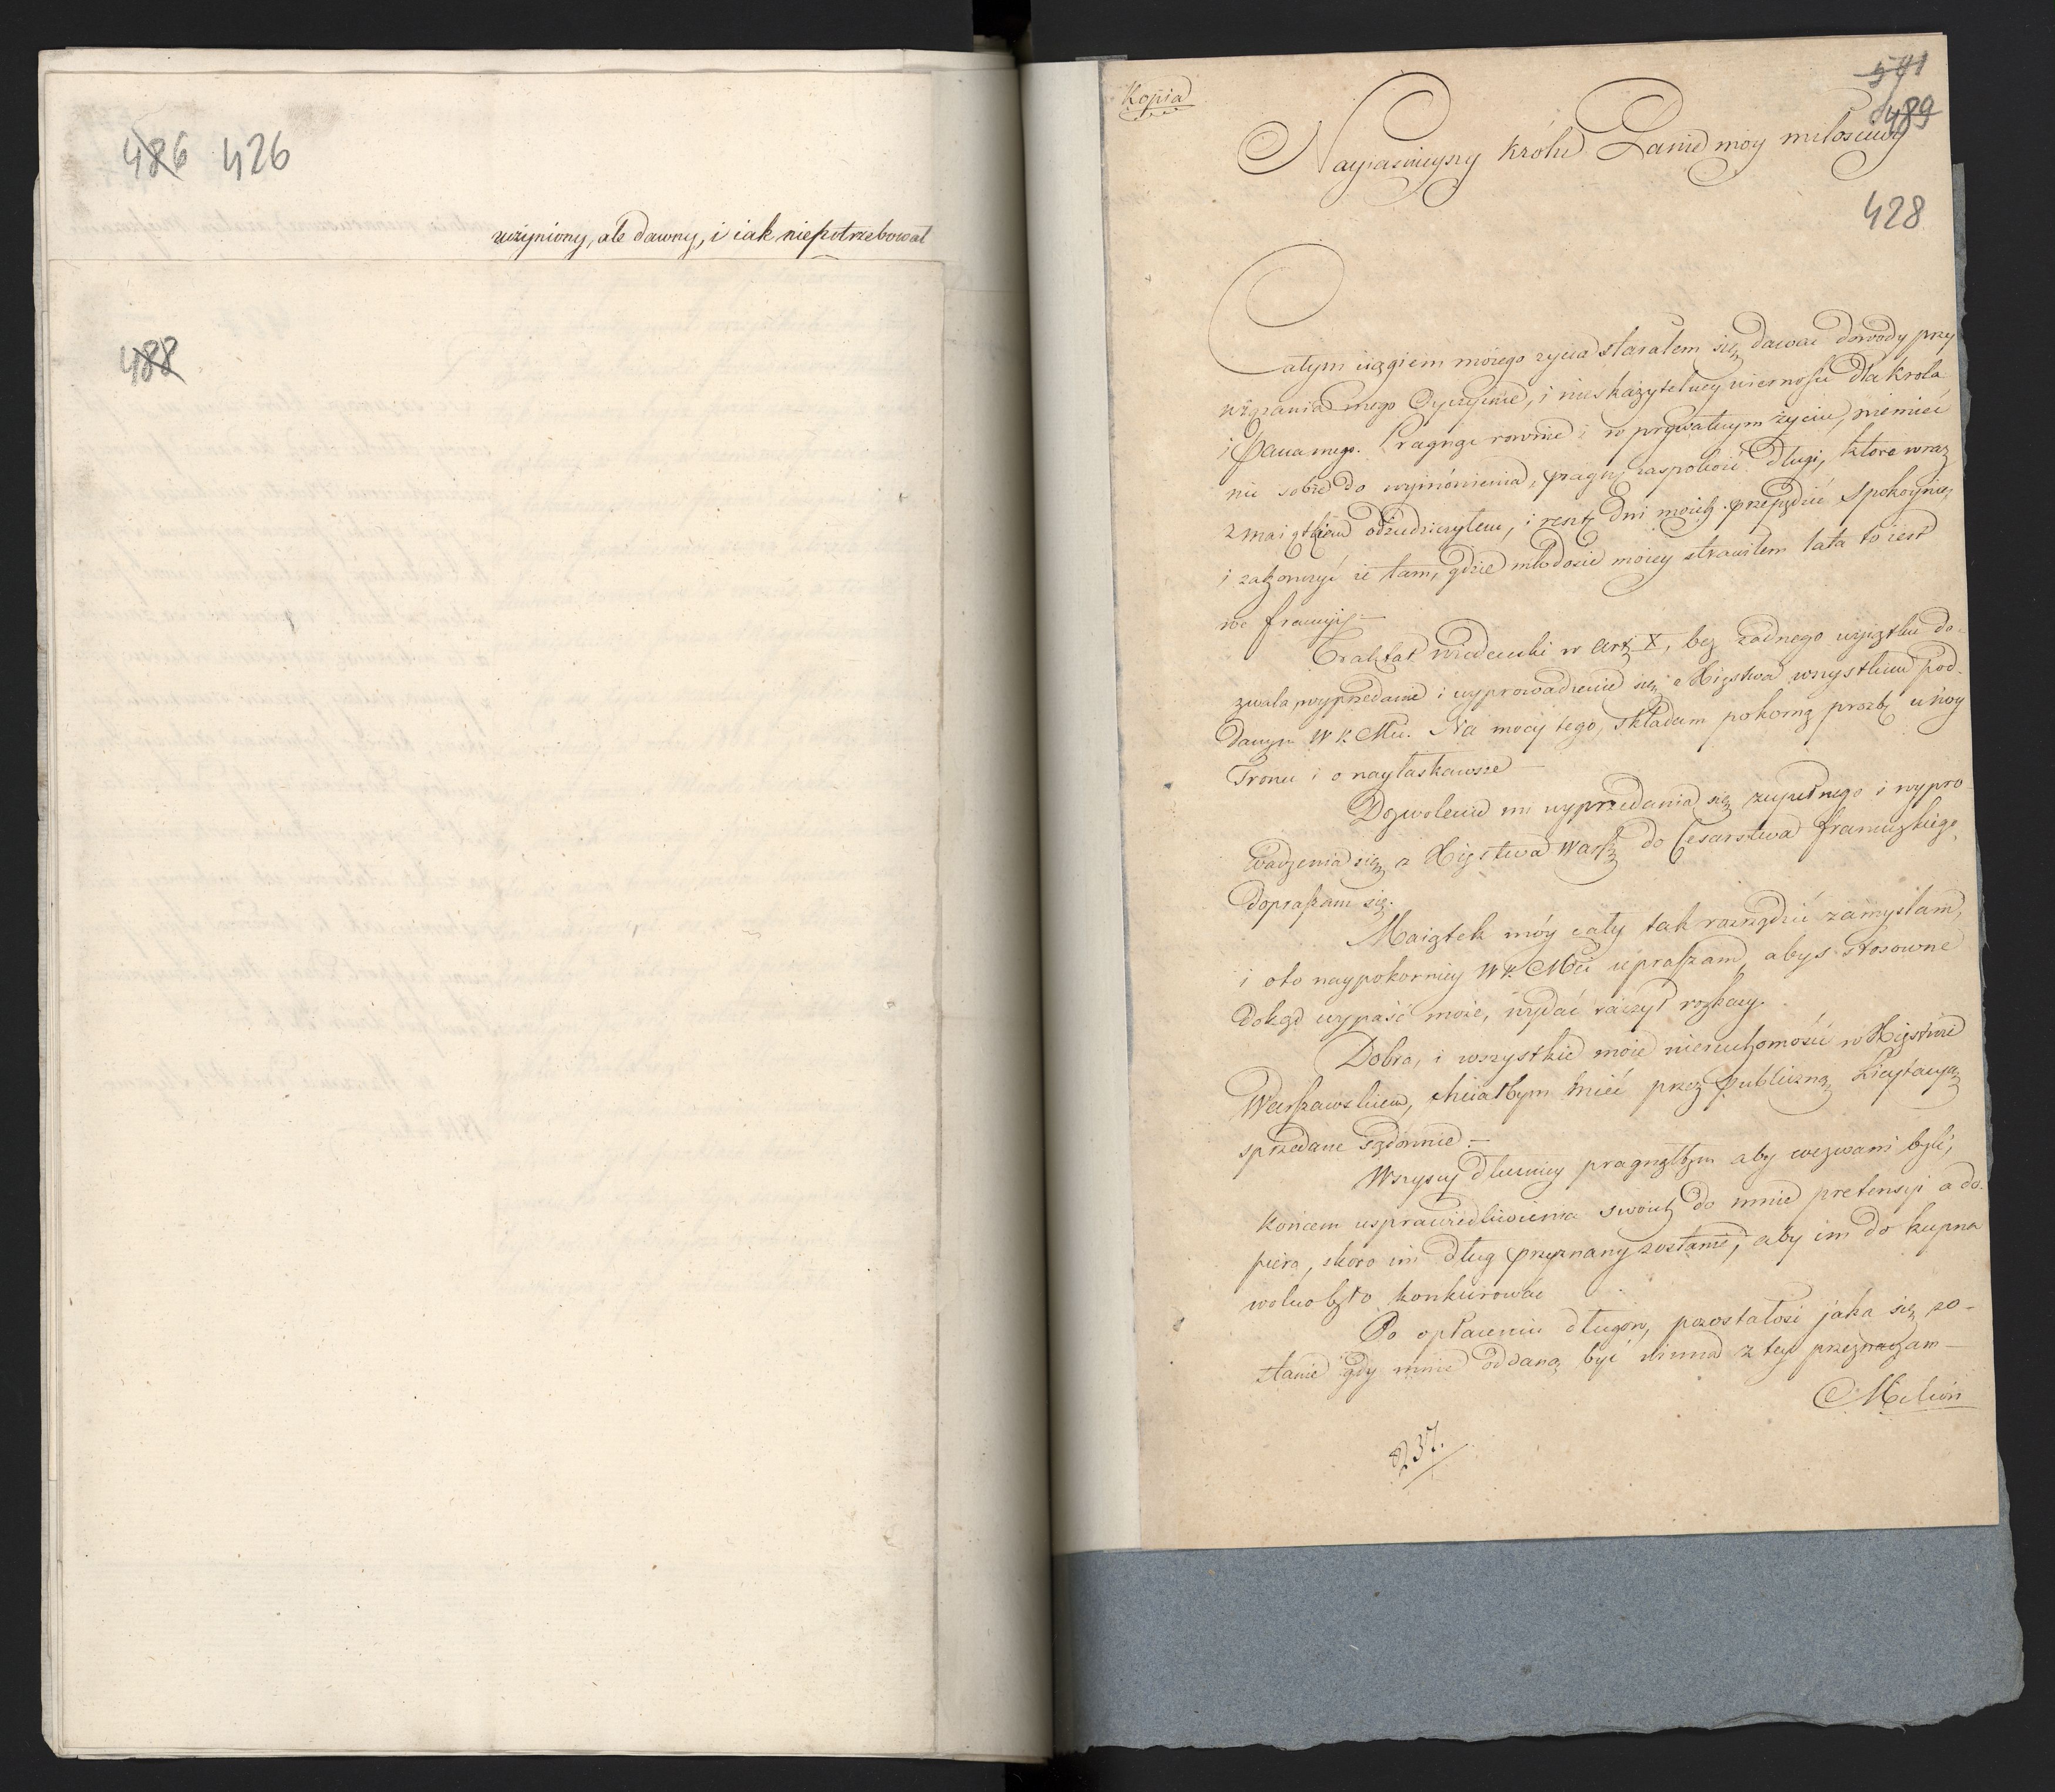 486 426
uczyniony, ale dawny, i iak niepotrzebował
488
Kopia
501
489
Nayiasnieyszy Królu Panie moy miłosciwy
428
Całym ciągiem moiego zycia starałem się dawać dowody przy
wiązania mego Oyczyznie, i nieskazytelney wiernosci dla Krola
i Pana mego. Pragnąc rownie i w prywatnym życiu, nie mieć
nic sobie do wymówienia, pragnę zaspokoić długi, które wraz
z maiątkiem odziedziczyłem, i resztę dni moich przepędzić spokoynie,
i zakonczyć ie tam, gdzie młodosci moiey strawiłem lata to iest
we francyi —
Traktat Wiedenski w Art. X, bez żadnego wyiątku do-
zwala wyprzedanie i wyprowadzenie się z Xięstwa wszystkim pod-
danym W K Mci. Na mocy tego, składam pokorną prozbę u nóg
Tronu i o nayłaskawsze —
Dozwolenie mi wyprzedania się zupełnego i wypro
wadzenia się z Xięstwa Warsz do Cesarstwa francuzkiego
dopraszam się.
Maiątek móy cały tak rozrządzić zamyslam,
i oto naypokorniey W K Mci upraszam, abys stosowne
dokąd wypaść może, wydać raczył rozkazy.
Dobra, i wszystkie moie nieruchomości w Xięstwie
Warszawskiem, chciałbym mieć przez publiczną Licytacyą
sprzedane sądownie —
Wszyscy dłużnicy pragnąłbym aby wezwani byli,
końcem usprawiedliwienia swoich do mnie pretensyi a do-
piero, skoro im dług przyznany zostanie, aby im do kupna
wolno było konkurować
Po opłaceniu długow, pozostałosć jaka się zo-
stanie gdy mnie oddaną być winna z tey przeznaczam —
Milion
237.